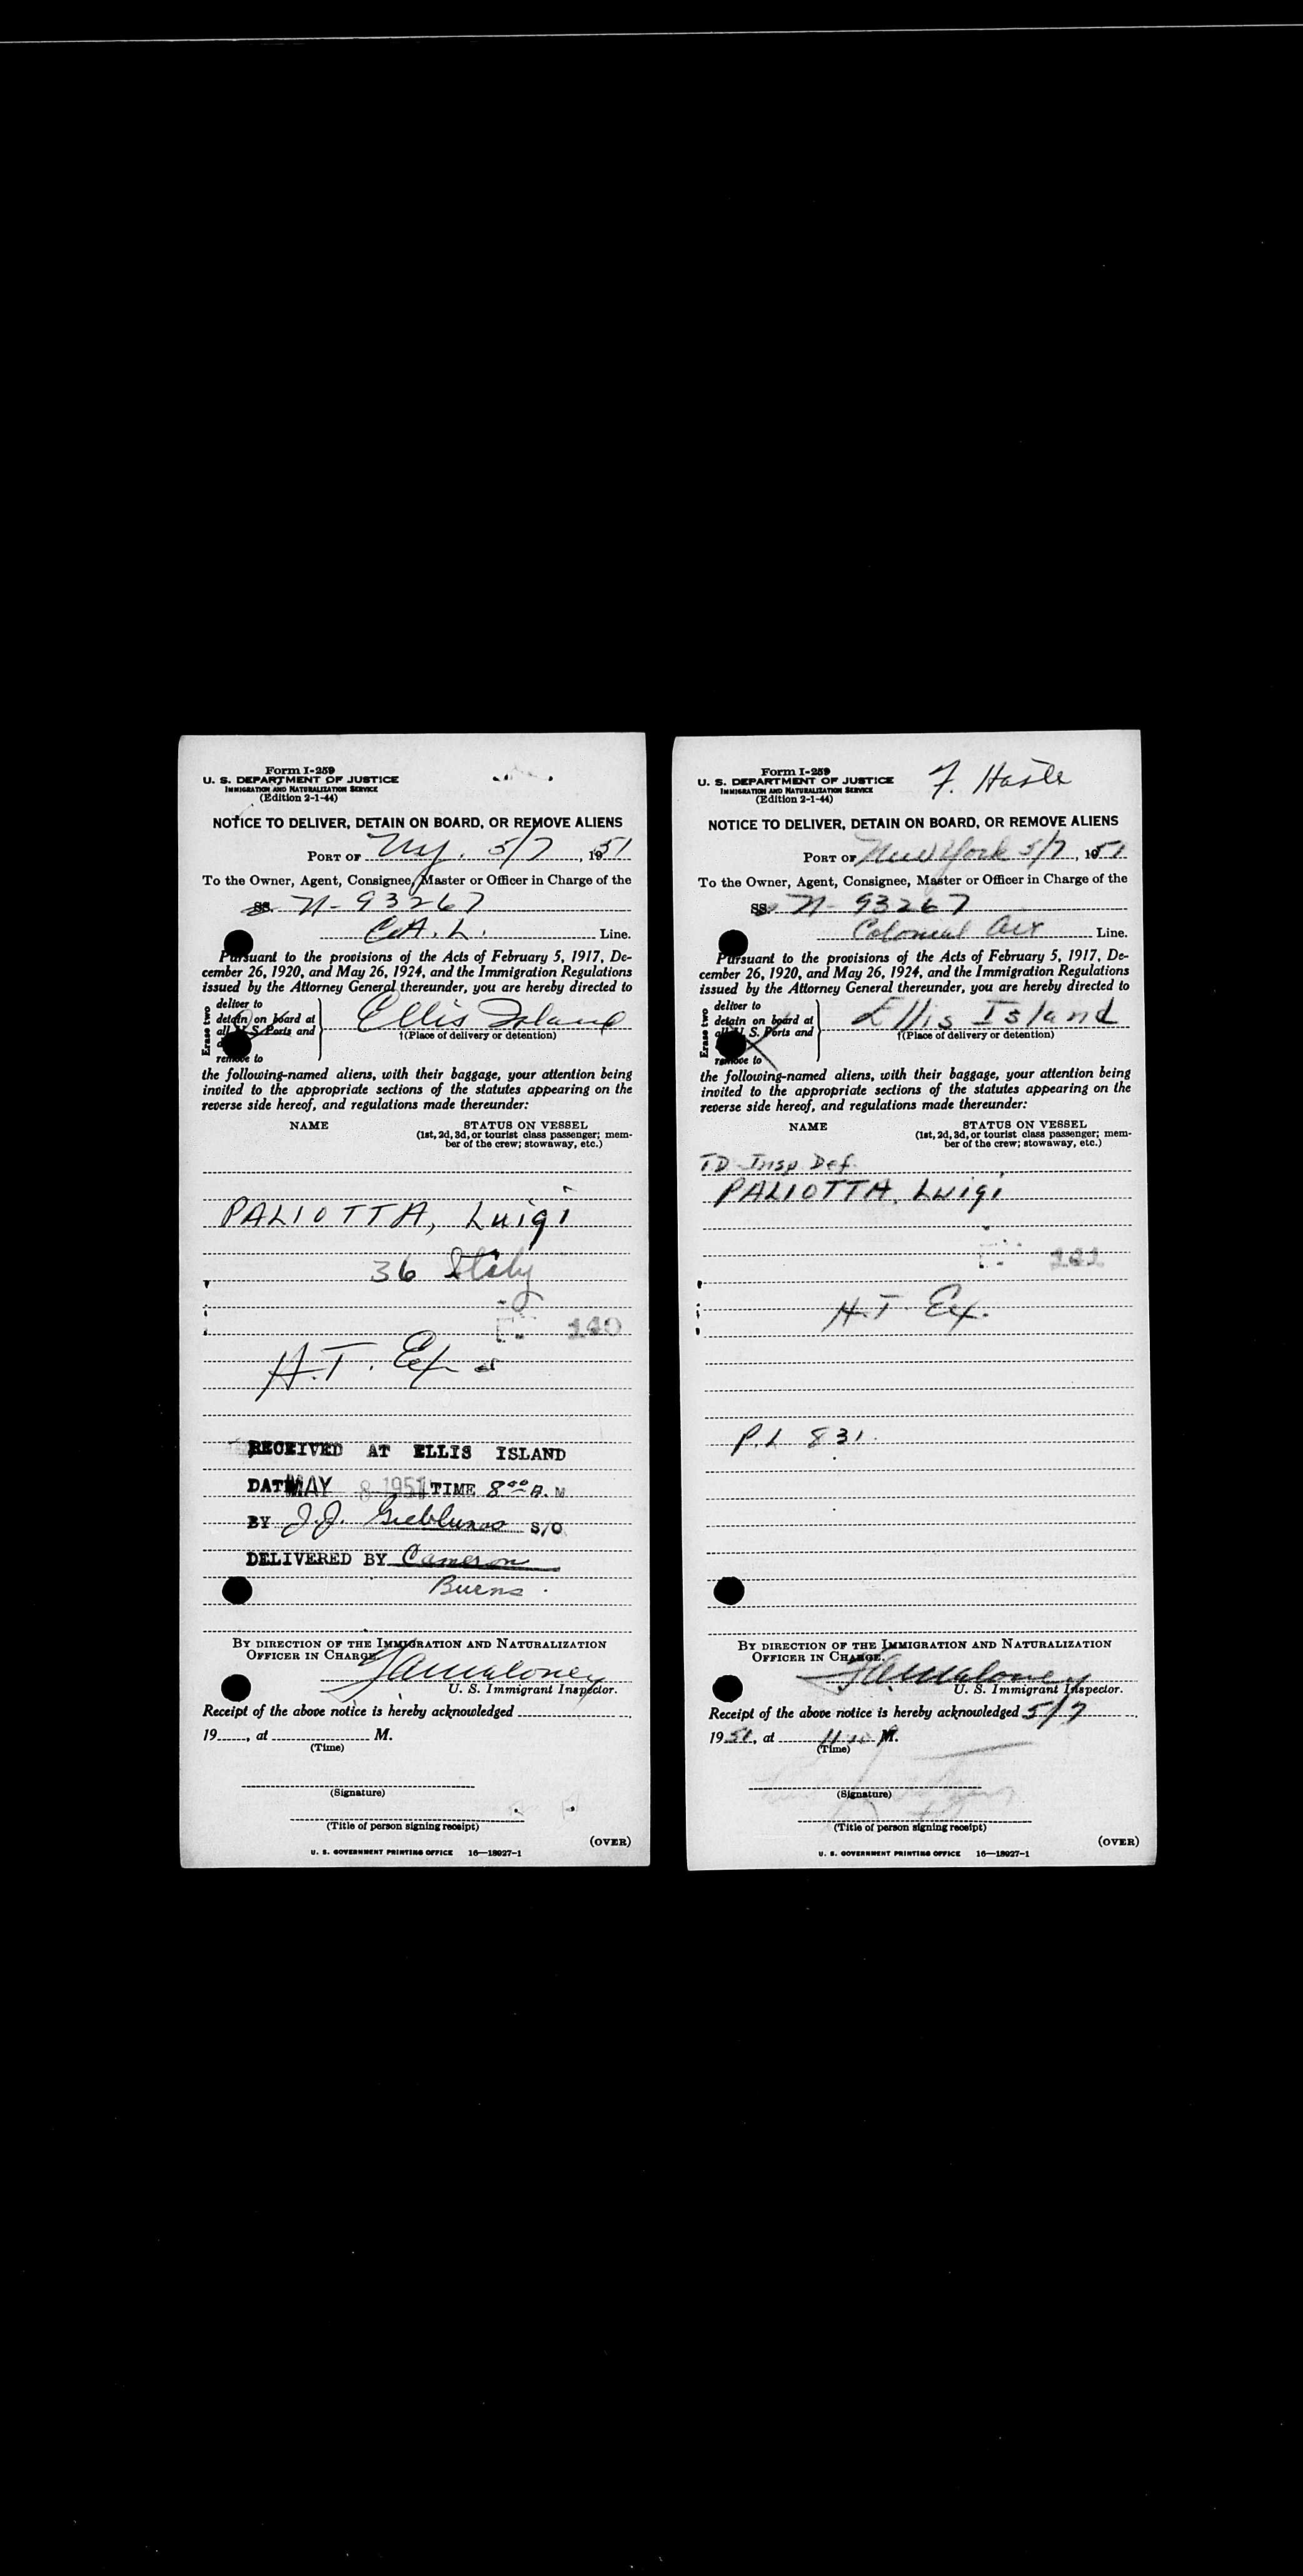 Form I-259
U. S. DEPARTMENT OF JUSTICE
IMMIGRATION AND NATURALIZATION SERVICE
(Edition 2-1-44)
NOTICE TO DELIVER, DETAIN ON BOARD, OR REMOVE ALIENS
PORT OF N.Y. 5/7, 1951
To the Owner, Agent, Consignee, Master or Officer in Charge of the
SS. N-93267
C.A.L. Line.
Pursuant to the provisions of the Acts of February 5, 1917, De-
cember 26, 1920, and May 26, 1924, and the Immigration Regulations
issued by the Attorney General thereunder, you are hereby directed to
Erase two
deliver to
detain on board at
all U. S. Ports and
remove to
Ellis Island
†(Place of delivery or detention)
the following-named aliens, with their baggage, your attention being
invited to the appropriate sections of the statutes appearing on the
reverse side hereof, and regulations made thereunder:
NAME STATUS ON VESSEL
(1st, 2d, 3d, or tourist class passenger; mem-
ber of the crew; stowaway, etc.)
PALIOTTA, Luigi
36 Italy
140
H.T. Ex
RECEIVED AT ELLIS ISLAND
DATE MAY 8 1951 TIME 8 00 A. M
BY J.J. S/O
DELIVERED BY Cameron
Burns
BY DIRECTION OF THE IMMIGRATION AND NATURALIZATION
OFFICER IN CHARGE.
FAMaloney
U. S. Immigrant Inspector.
Receipt of the above notice is hereby acknowledged
19, at M.
(Time)
(Signature)
(Title of person signing receipt)
(OVER)
U. S. GOVERNMENT PRINTING OFFICE 16—18027-1
Form I-259
U. S. DEPARTMENT OF JUSTICE
IMMIGRATION AND NATURALIZATION SERVICE
(Edition 2-1-44)
F. Hasle
NOTICE TO DELIVER, DETAIN ON BOARD, OR REMOVE ALIENS
PORT OF New York 5/7, 1951
To the Owner, Agent, Consignee, Master or Officer in Charge of the
SS. N-93267
Colonial Air Line.
Pursuant to the provisions of the Acts of February 5, 1917, De-
cember 26, 1920, and May 26, 1924, and the Immigration Regulations
issued by the Attorney General thereunder, you are hereby directed to
Erase two
deliver to
detain on board at
all U. S. Ports and
remove to
Ellis Island
†(Place of delivery or detention)
the following-named aliens, with their baggage, your attention being
invited to the appropriate sections of the statutes appearing on the
reverse side hereof, and regulations made thereunder:
NAME STATUS ON VESSEL
(1st, 2d, 3d, or tourist class passenger; mem-
ber of the crew; stowaway, etc.)
TD Insp Def.
PALIOTTA, Luigi
141
H.T. Ex.
P.L 831
BY DIRECTION OF THE IMMIGRATION AND NATURALIZATION
OFFICER IN CHARGE.
FAMaloney
U. S. Immigrant Inspector.
Receipt of the above notice is hereby acknowledged 5/7
1951, at M.
(Time)
(Signature)
(Title of person signing receipt)
(OVER)
U. S. GOVERNMENT PRINTING OFFICE 16—18027-1